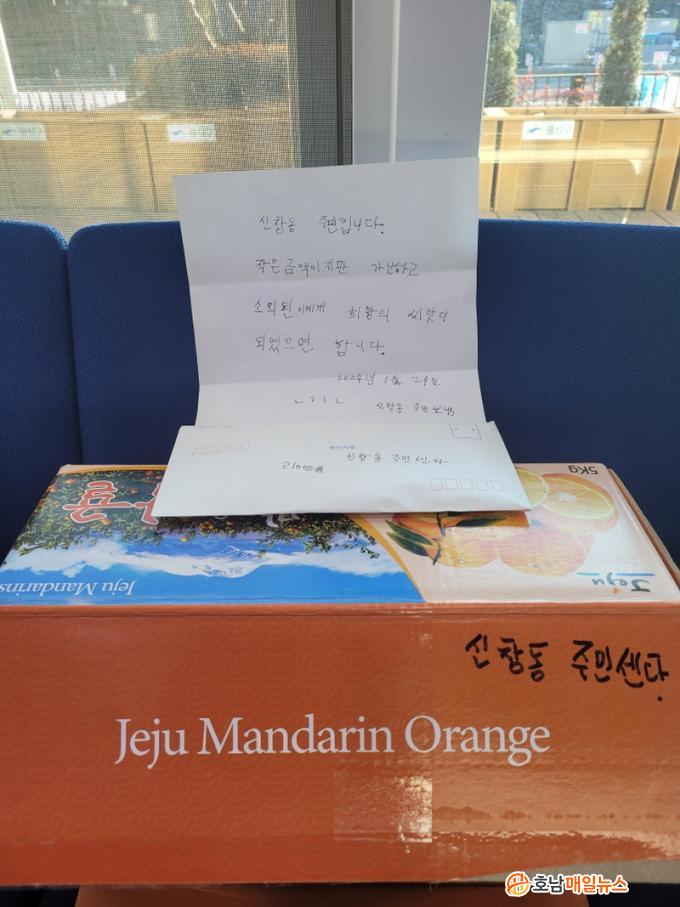 광산구
광산구
신창동 주민입니다.
작은금액이지만 가난하고
소외된이에게 희망의 씨앗이
되였으면 합니다.
2024년 1월 29일
신창동 주민 보냄
신창동 주민센타
5Kg
Jeju Mandarins
Jeju
신창동 주민센타.
Jeju Mandarin Orange
호남매일뉴스